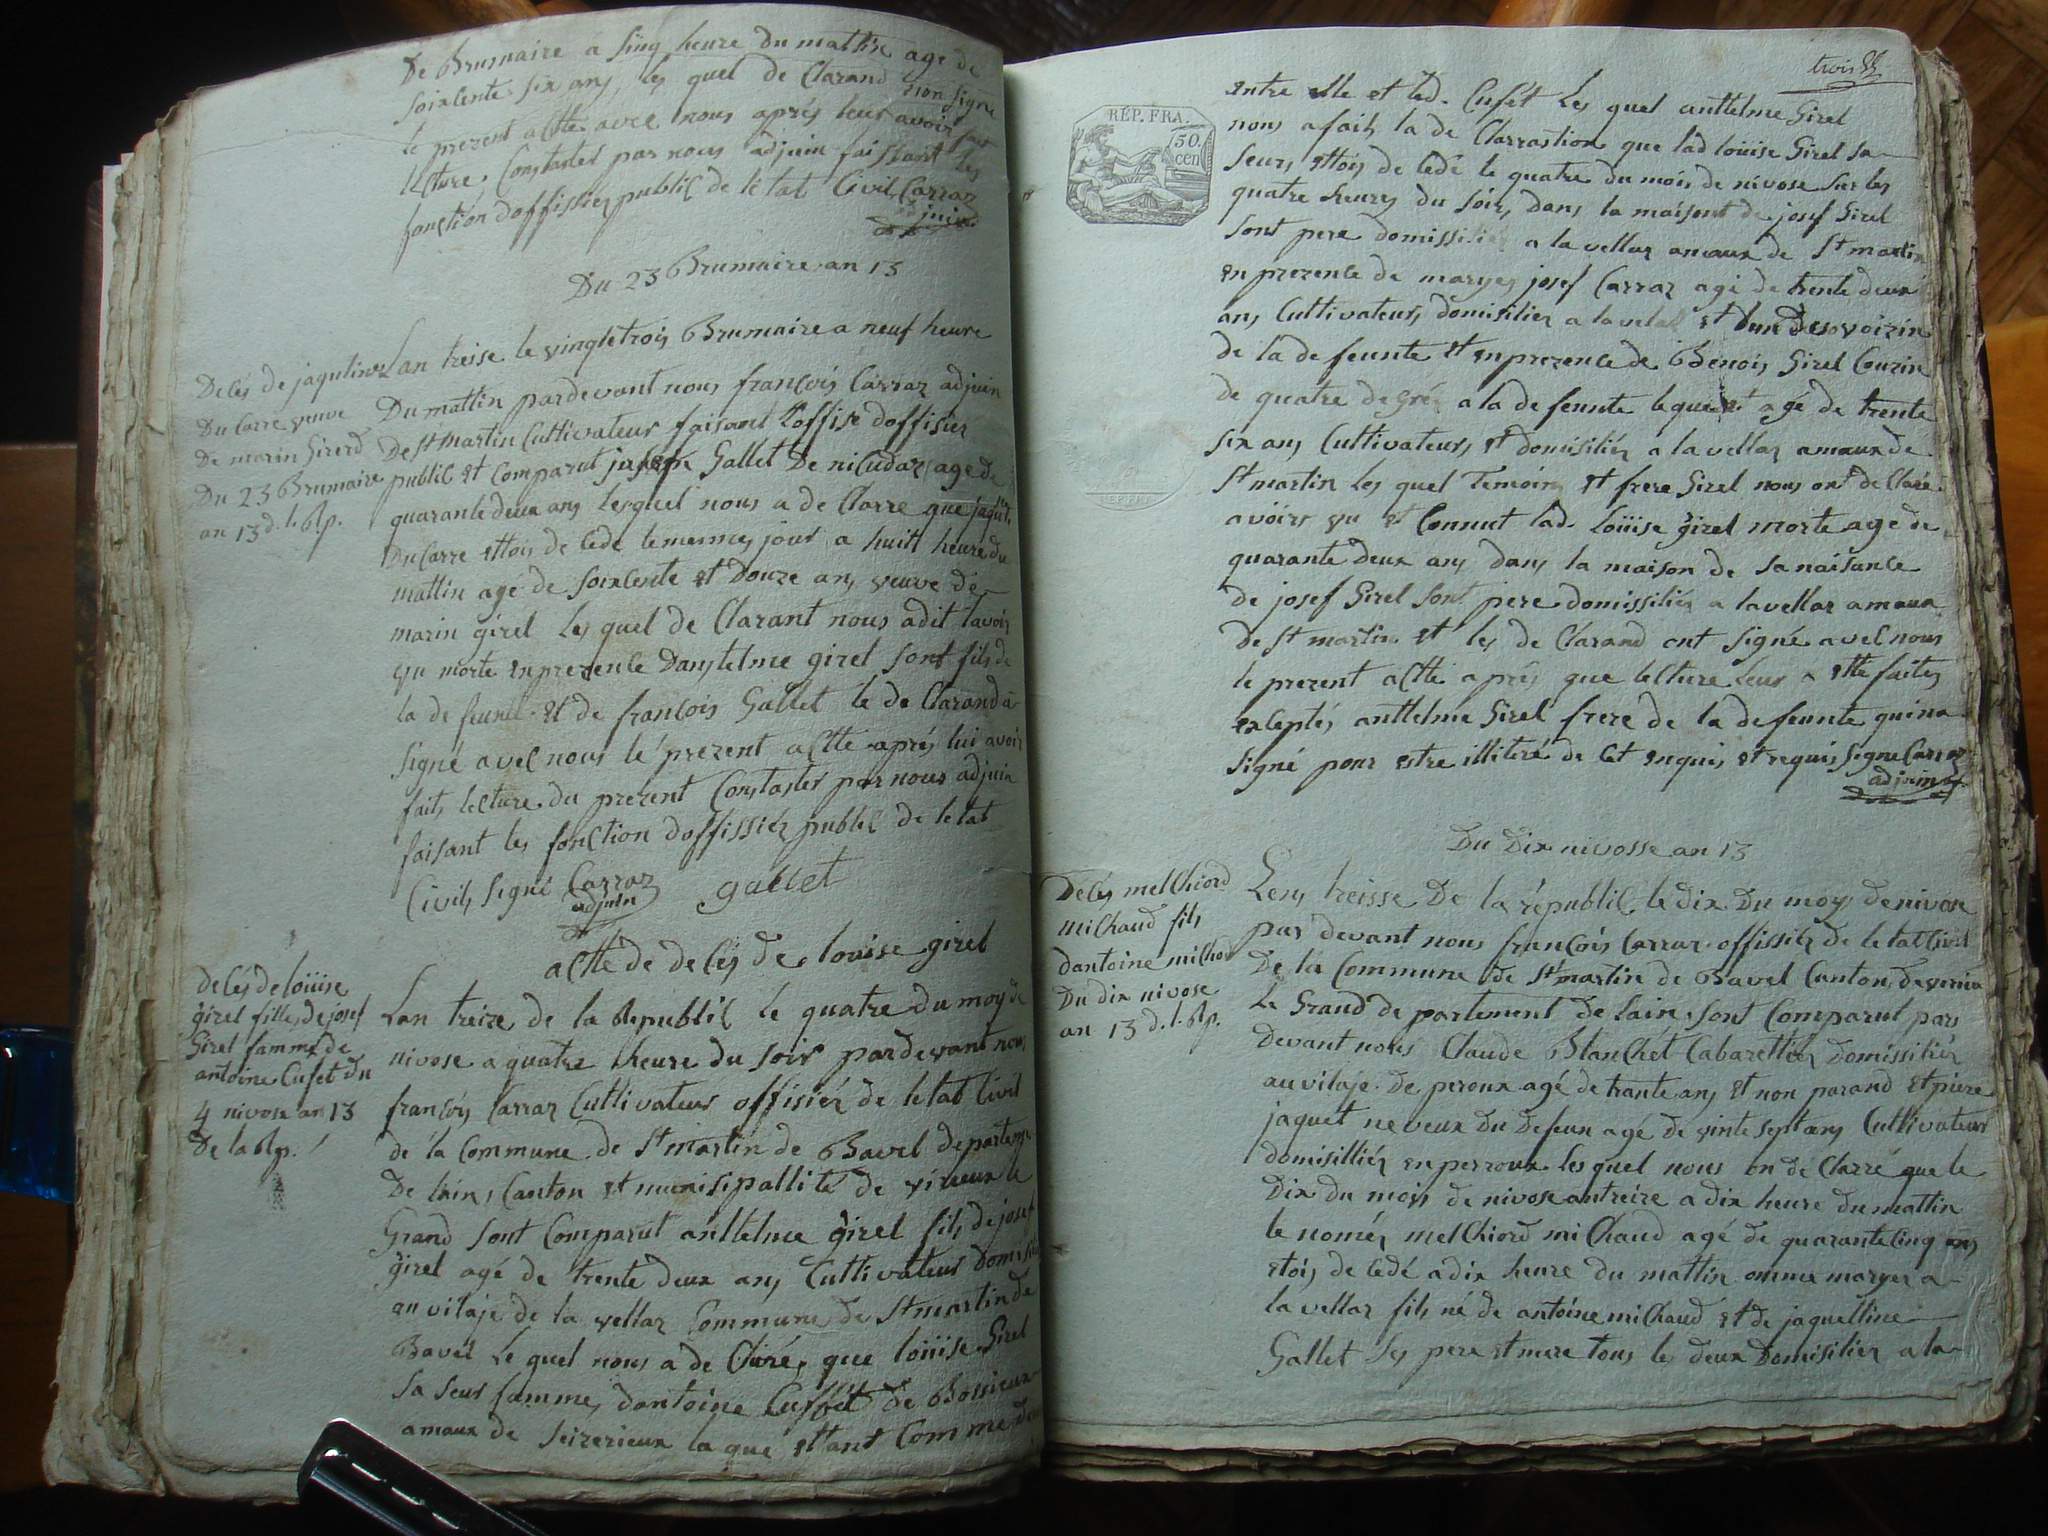 De Brumaire a sinq heure du mattin age de
soixcente six ans, les quel de Clarand non signe
le prezent actte avec nous aprés leur avoir fait
lecture, Constaster par nous adjuin faissant les
fonction doffissiér public de létat Civil Carraz
adjuin
Du 23 Brumaire an 13
Decés de jaqutine
Du Carre veuve
De marin Girerd
Du 23 Brumaire
an 13 d. l. Rp.
Lan treise le vingtetrois Brumaire a neuf heure
Du mattin pardevant nous françois Carraz adjuin
De st martin Cultivateur faisant l'offise doffisier
public et Comparut Gallet De nicudaz age de
quarante deux ans lesquel nous a de Clarre que jaqut.
Du Carre ettois de cede le mesmes jour a huitt heure du
mattin agé de soixcente et douze ans veuve de
marin girel les quel de Clarant nous adit lavoir
vu morte enprezence Danstelme girel sont fils de
la de feunte et de françois Gallet le de Clarand a
signé avec nous lé prezent actte aprés lui avoir
fait lecture du prezent Constaster par nous adjuin
faisant les fonction doffissiér public de letat
Civil, signé Carraz gallet
adjuin
actte de decés de louise girel
decés de loüise
girel fille de josef
Girel famme de
antoine Cufet du
4 nivose an 13
De la Rp.
Lan treize de la Republic le quatre du moy de
nivose a quatre heure du soir pardevant nous
françois Carraz Cultivateur offisiér de letat Civil
de la Commune de St martin de Bavel departeme
De lain, Canton et munisipallité de virieux le
Grand sont Comparut anttelme girel fils de josef
girel agé de trente deux ans Cultivateur Domisilié
au vilaje de la vellaz Commune de St martin de
Bavel Le quel nous a de Claré, que loüise Girel
sa seur famme, dantoine Cuffet de Bossieux
amaux de seizerieux la que ettant Comme de
trois
REP. FRA.
50.
cen
REP. FRA.
entre elle et led. Cufet Les quel anttelme Girel
nous afait, la de Clarrastion que lad loüise Girel sa
seur, ettois de cedé le quatre du mois de nivose sur les
quatre heures du soir, dans la maisont de josef Girel
sont pere domissilié a la vellaz amaux de St martin
en prezence de maryes josef Carraz agé de trente deux
ans Cultivateur, domisilier a lavelaz et lun Desovoizin
de la de feunte et enprezence de Benois Girel Couzin
de quatre degrés a la de feunte lequel et agé de trente
six ans Cultivateur, et domisiliér a la vellaz amaux de
St martin Les quel Temoins et frere Girel nous ont de Claré
avoirs vu et Connut lad. loüise girel morte age de
quarante deux ans dans la maison de sa naisance
de josef Girel sont pere domissiliér a lavellaz amaux
de St martin et les de Clarand ont signé avec nous
le prezent actte aprés que lecture leur a ette faites
exceptés anttelme Girel frere de la defeunte quina
signé pour estre illiteré de cet enquis et requis signe Carraz
adjuin
Du Dix nivosse an 13
Decés melChiord
miChaud fils
dantoine micho
Du dix nivose
an 13 d. l. Rp.
Lens treisse De la république le dix Du moy de nivose
par devant nous françois Carraz offissiér de letat Civil
De la Commune de St martin de Bavel Canton de verieu
Le Grand departement de lain, sont Comparut par
devant nous Claude Blanchet Cabarettiér domissiliér
au vilaje De peroux agé de trante ans et non parand et piere
jaquet neveux du defeun agé de vinte sept ans Cultivateur
domisilliér en perroux les quel nous on de Clarré que le
Dix du mois de nivose antreize a dix heure du mattin
le nomér melChiord miChaud agé de quarante Cinq ans
etois de cedé a dix heure du mattin omme maryer a
la vellaz fils né de antoine miChaud et de jaquelline
Gallet ses pere et mere tous les deux Domisilier a la